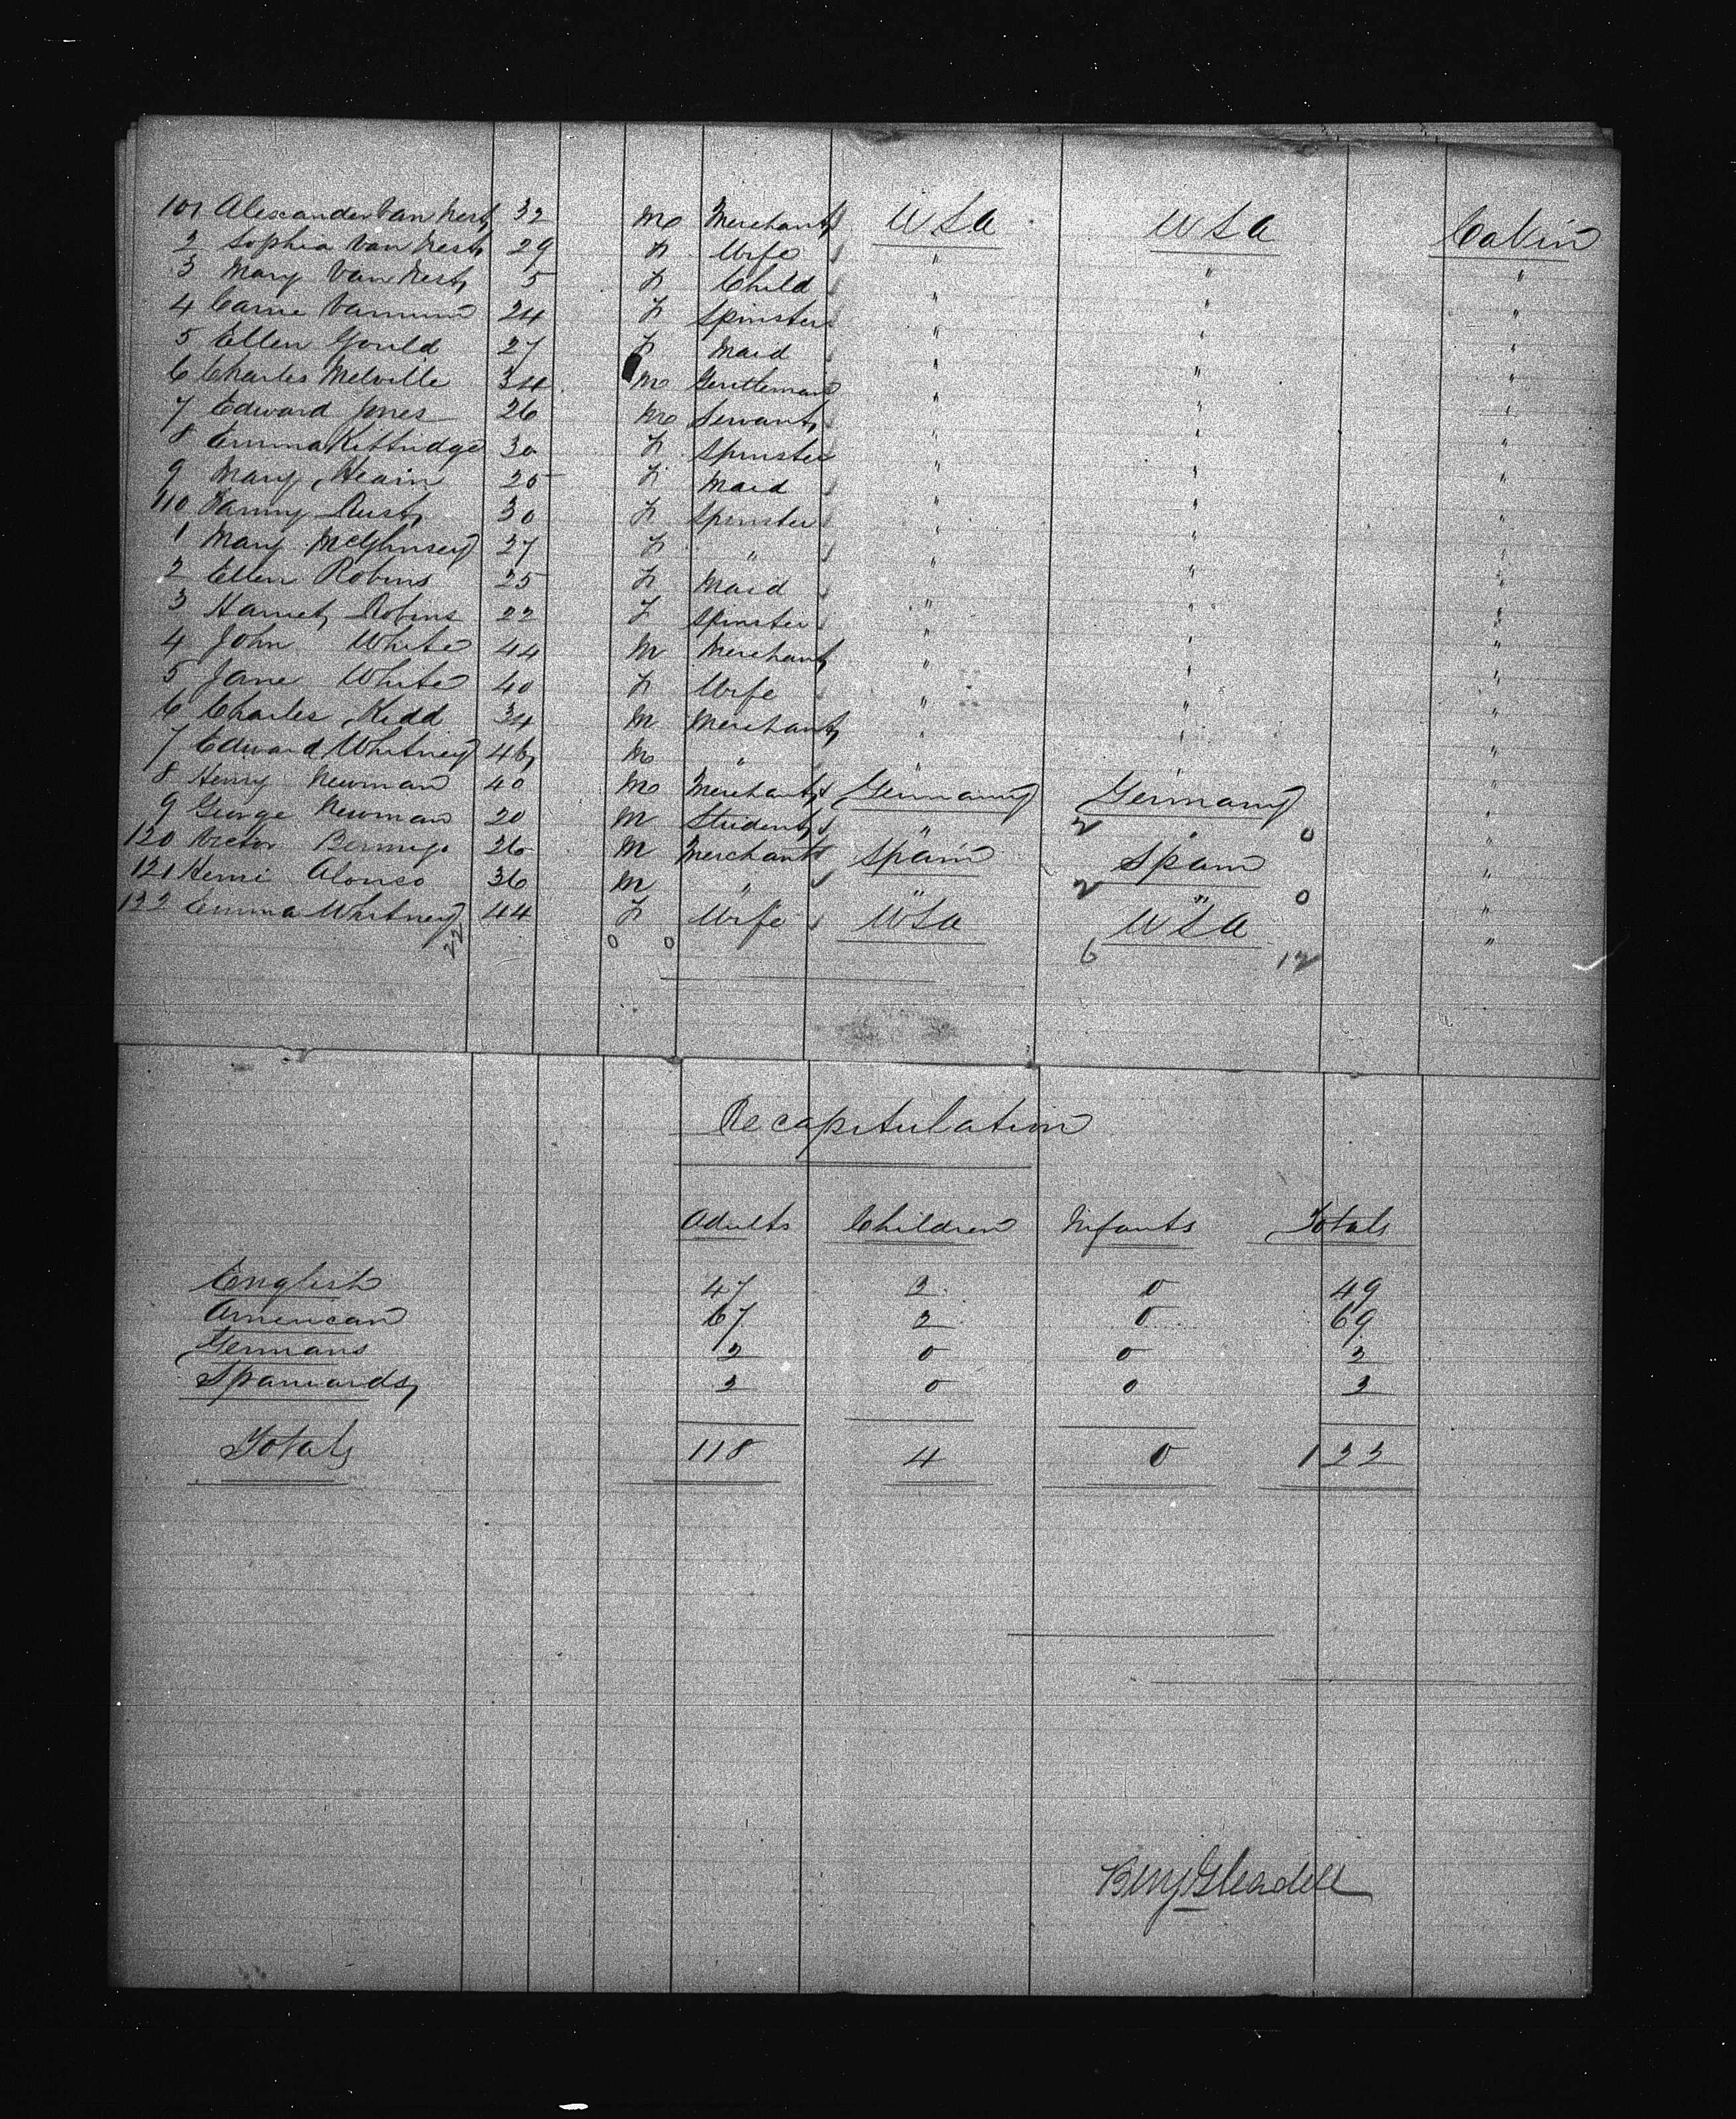 101 Alexander Van Nest 32 M Merchant U S A U S A Cabin
2 Sophia Van Nest 29 F Wife " " "
3 Mary Van Nest 5 F Child " " "
4 Carrie Varnum 24 F Spinster " " "
5 Ellen Gould 27 F Maid " " "
6 Charles Melville 34 M Gentleman " " "
7 Edward Jones 26 M Servant " " "
8 Emma Kittridge 30 F Spinster " " "
9 Mary Hearn 25 F Maid " " "
110 Fanny Rust 30 F Spinster " " "
1 Mary 27 F " " " "
2 Ellen Robins 25 F Maid " " "
3 Harriet Robins 22 F Spinster " " "
4 John White 44 M Merchant " " "
5 Jane White 40 F Wife " " "
6 Charles Kidd 34 M Merchant " " "
7 Edward Whitney 46 M " " " "
8 Henry Newman 40 M Merchant Germany Germany "
9 George Newman 20 M Student " 2 " 0 "
120 Victor 26 M Merchant Spain Spain "
121 Henri Alonso 36 M " " 2 " 0 "
122 Emma Whitney 44 F Wife U S A U S A "
22 0 0 6 12
Recapitulation
Adults Children Infants Totals
English 47 2 0 49
American 67 2 0 69
Germans 2 0 0 2
Spaniards 2 0 0 2
Totals 118 4 0 122
Benj Gleadell